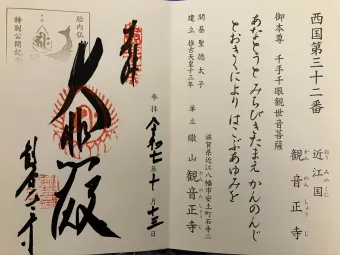 西国第三十二番
近江国
おうみのくに
観音正寺
かんのんしょうじ
御本尊 千手千眼観世音菩薩
あなとうと みちびきたまえ かんのんじ
とおきくにより はこぶあゆみを
開基 聖徳太子
建立 推古天皇十三年
滋賀県近江八幡市安土町石寺二
単立 繖山 観音正寺
かんのんしょうじ
参拝 令和七年十一月十三日
奉拝
大悲殿
観音正寺
胎内仏
特別公開記念